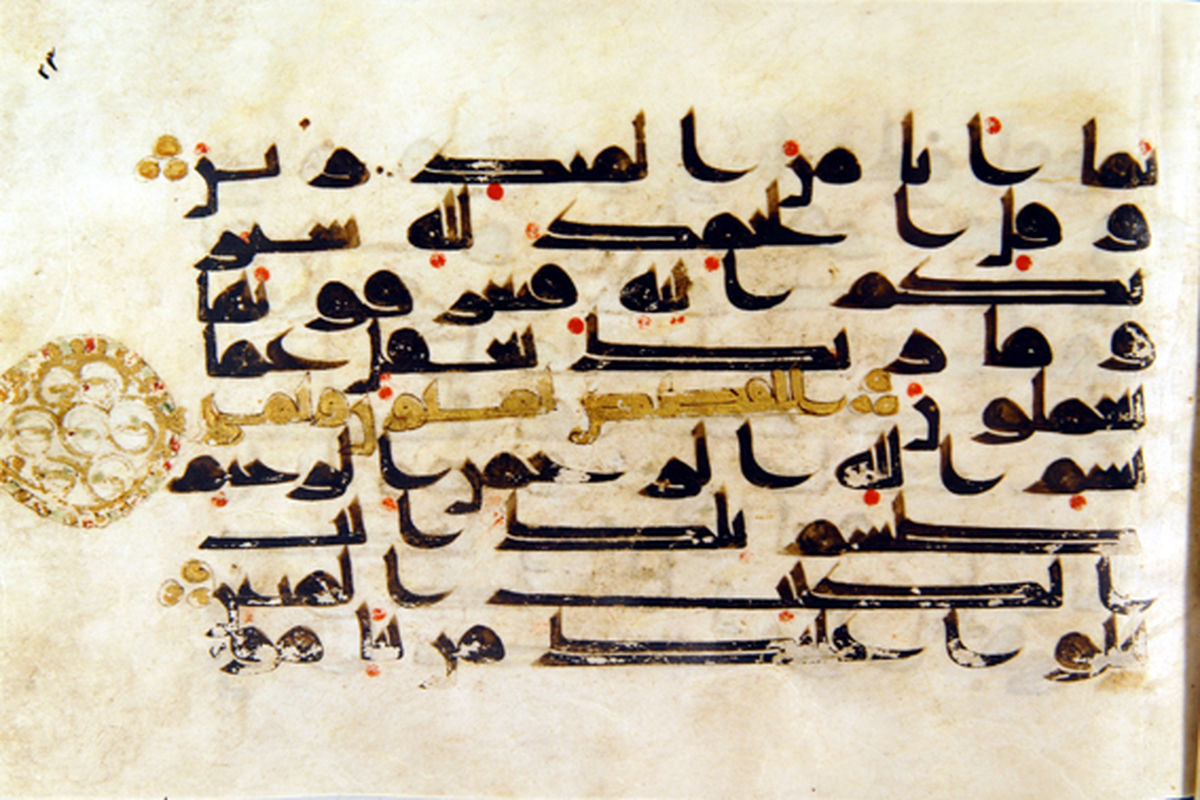 نما انا من المنذرين
و قل الحمد لله سير
يكم ايته فتعرفونها
و ما ربك بغفل عما
تعملون القصص ثمنون وثمني
بسم الله الرحمن الرحيم
طسم تلك ايت
الكتب المبين
نتلوا عليك من نبا مو